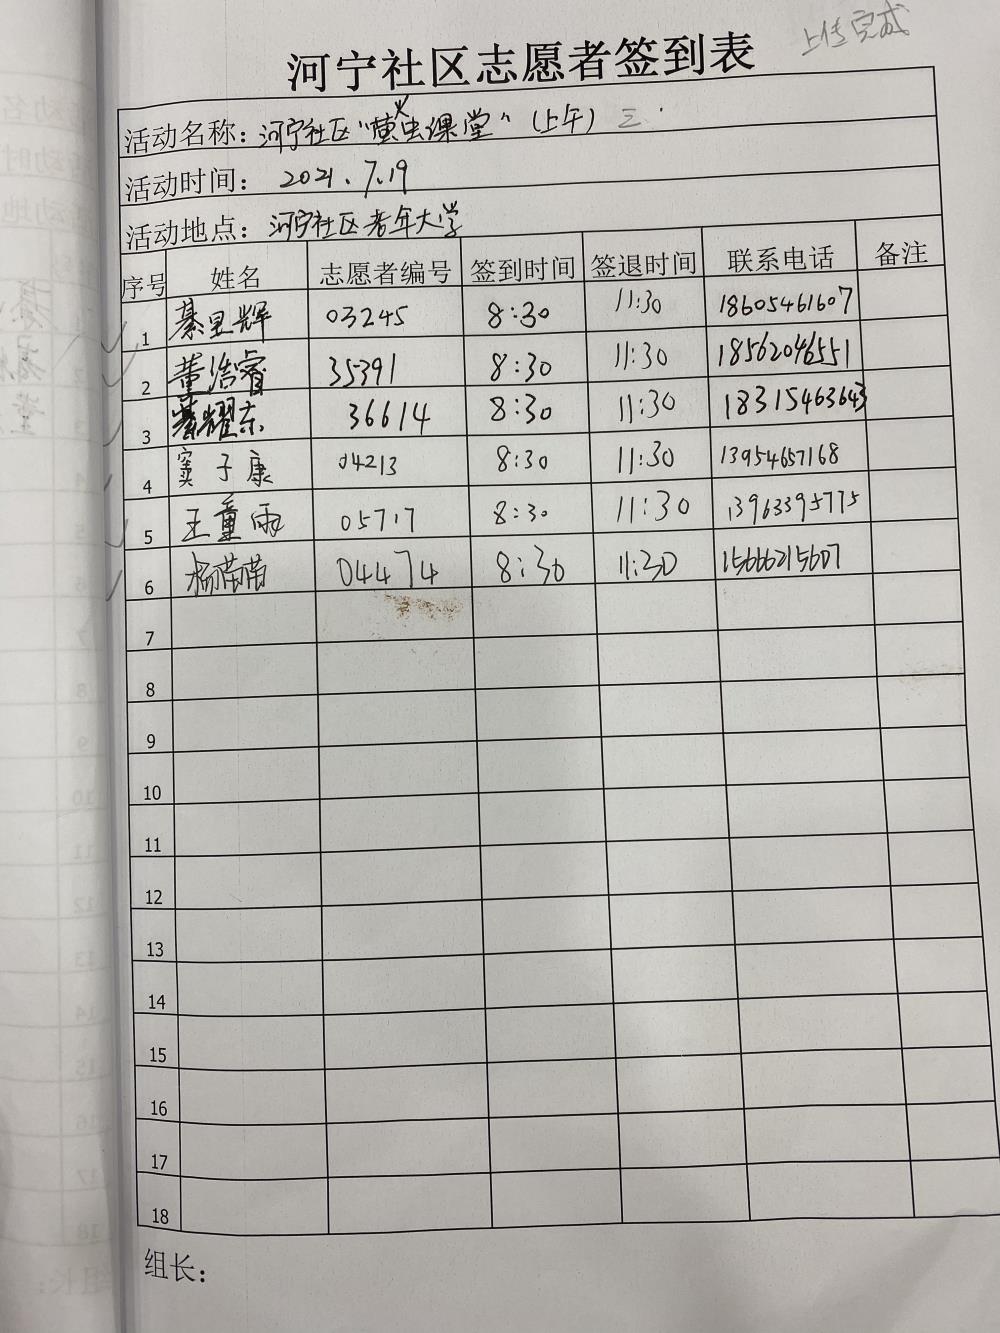 上传完成
河宁社区志愿者签到表
活动名称：河宁社区“萤火虫课堂”（上午）三
活动时间：2021.7.19
活动地点：河宁社区老年大学
序号 姓名 志愿者编号 签到时间 签退时间 联系电话 备注
1 綦星辉 03245 8:30 11:30 18605461607
2 董浩睿 35391 8:30 11:30 18562046551
3 綦耀东 36614 8:30 11:30 18315463643
4 窦子康 04213 8:30 11:30 13954657168
5 王童雨 05717 8:30 11:30 13963395775
6 杨苗苗 04474 8:30 11:30 15666215607
7
8
9
10
11
12
13
14
15
16
17
18
组长：